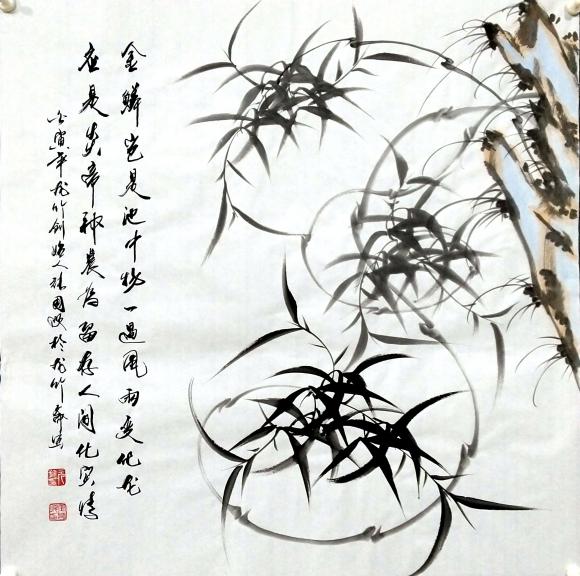 金鳞岂是池中物一遇风雨变化龙
应是炎帝神农为留存人间化冥情
壬寅年龙竹创始人张国政于龙竹斋画